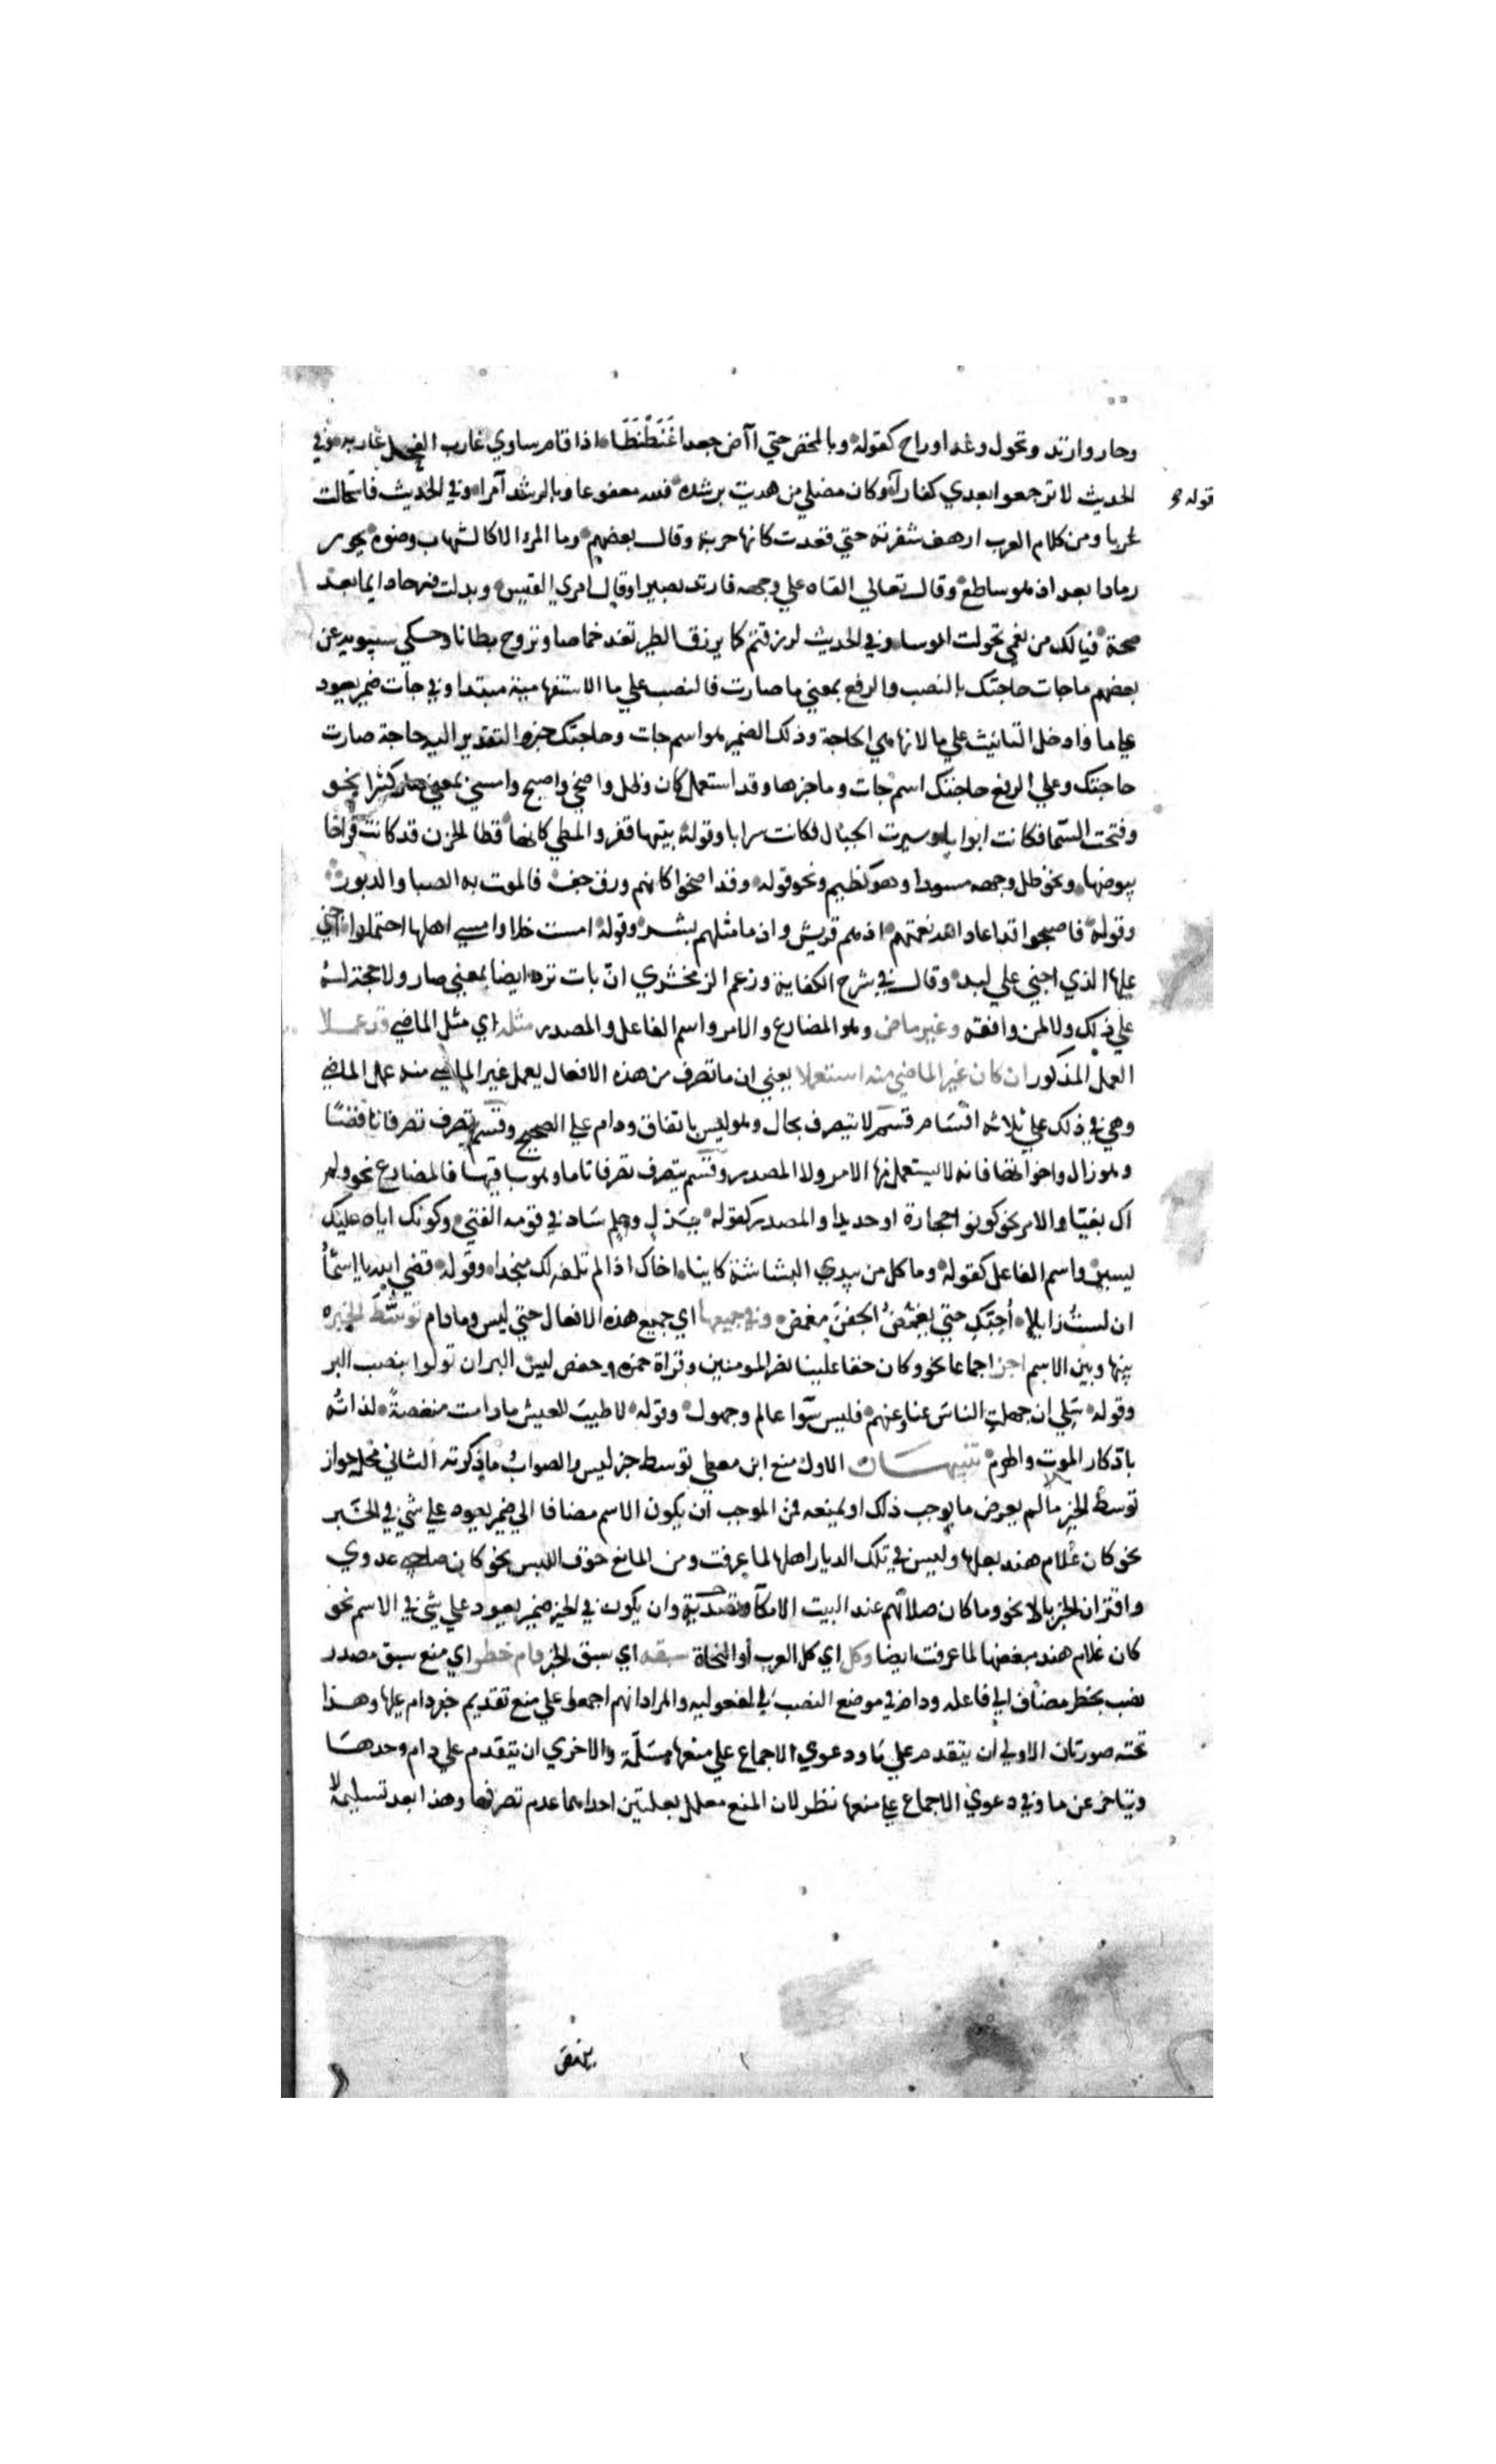 وحار وارتد وتحول وغدا وراح كقوله وبالمخض حتي اآض جعدا غَنَطْنَطًا اذا قام ساوي غارب الفحل غاربه وفي
قوله و
الحديث لا ترجعوا بعدي كفارا وكان مضلي من هديت برشده فلله مغو عاد بالرشد آمرا وفي الحديث فاستحالت
غربا ومن كلام العرب ارهف شفرته حتي قعدت كانها حربة وقال بعضهم وما المرء الا كالشهاب وضوه يحور
رمادا بعد اذ هو ساطع وقال تعالي القاه علي وجهه فارتد بصيرا وقال امري القيس وبدلت قرحا داميا بعد
صحة فيالك من نعمي تحولت ابوسا وفي الحديث لرزقتم كما يرزق الطير تغدو خماصا وتروح بطانا وحكي سيبويه عن
بعضهم ما جات حاجتك بالنصب والرفع بمعني ما صارت فالنصب علي ما الاستفهامية مبتدا وفي جات ضمير يعود
علي ما وادخل التانيث علي ما لانها هي الحاجة وذلك الضمير هو اسم جات وحاجتك خبره التقدير اليه حاجة صارت
حاجتك وعلي الرفع حاجتك اسم جات وما خبرها وقد استعمل كان وظل واضحي واصبح وامسي بمعني صار كثيرا نحو
وفتحت السما فكانت ابوابا وسيرت الجبال فكانت سرابا وقوله بتيها قفر والمطي كانها قطا الحزن قد كانت فراخا
بيوضها ونحو ظل وجهه مسودا وهو كظيم ونحو قوله وقد اضحوا كانهم ورق جف فالموت به الصبا والدبور
وقوله فاصبحوا قد اعاد الله نعمتهم اذ هم قريش واذ ما مثلهم بشر وقوله امست خلا وامسي اهلها احتملوا اخني
عليها الذي اخني علي لبد وقال في شرح الكفاية وزعم الزمخشري ان بات ترد ايضا بمعني صار ولا حجة له
علي ذلك ولا لمن وافقه وغير ماض وهو المضارع والامر واسم الفاعل والمصدر مثله اي مثل الماضي قد عملا
العمل المذكور ان كان غير الماضي منه استعملا يعني ان ما تصرف من هذه الافعال يعمل غير الماضي منه عمل الماضي
وهي في ذلك علي ثلاثة اقسام قسم لا يتصرف بحال وهو ليس باتفاق ودام علي الصحيح وقسم يتصرف تصرفا ناقصا
وهو زال واخواتها فانه لا يستعمل منها الامر ولا المصدر وقسم يتصرف تصرفا تاما وهو باقيها فالمضارع نحو ولم
اك بغيا والامر نحو كونوا حجارة او حديدا والمصدر كقوله ببذل وحلم ساد في قومه الفتي وكونك اياه عليك
يسير واسم الفاعل كقوله وما كل من يبدي البشاشة كاينا اخاك اذا لم تلفه لك منجدا وقوله قضي الله يا اسمأ
ان لستُ زايلا أُحِبّكِ حتي يغمّضُ الجفنَ مغمض وفي جميعها اي جميع هذه الافعال حتي ليس وما دام توسّط الخبر
بينها وبين الاسم اجز اجماعا نحو وكان حقا علينا نصر المومنين وقراة حمزه وحفص ليس البر ان تولوا بنصب البر
وقوله سلي ان جهلتِ الناسَ عنا وعنهم فليس سَوا عالم وجهول وقوله لا طيبَ للعيش ما دامت منغصةً لذاتُه
بادّكار الموت والهرم تنبيهات الاول منع ابن معطي توسط خبر ليس والصواب ما ذكرته الثاني محل جواز
توسط الخبر ما لم يعرض ما يوجب ذلك او يمنعه فمن الموجب ان يكون الاسم مضافا الي ضمير يعود علي شي في الخبر
نحو كان غلام هند بعلها وليس في تلك الديار اهلها لما عرفت ومن المانع خوف اللبس نحو كان صاحبي عدوي
واقتران الخبر بالا نحو وما كان صلاتهم عند البيت الا مكآ وتصدية وان يكون في الخبر ضمير يعود علي شي في الاسم نحو
كان غلام هند مبغضها لما عرفت ايضا وكل اي كل العرب أو النحاة سبقه اي سبق الخبر دام حظر اي منع سبق مصدر
نصب بحظر مضاف الي فاعله ودام في موضع النصب في المفعوليه والمراد انهم اجمعوا علي منع تقديم خبر دام عليها وهذا
تحته صورتان الاولي ان يتقدم علي ما ودعوي الاجماع علي منعها مسلّمة والاخري ان يتقدم علي دام وحدها
ويتاخر عن ما وفي دعوي الاجماع علي منعها نظر لان المنع معلل بعلتين احداهما عدم تصرفها وهذا بعد تسليمه لا